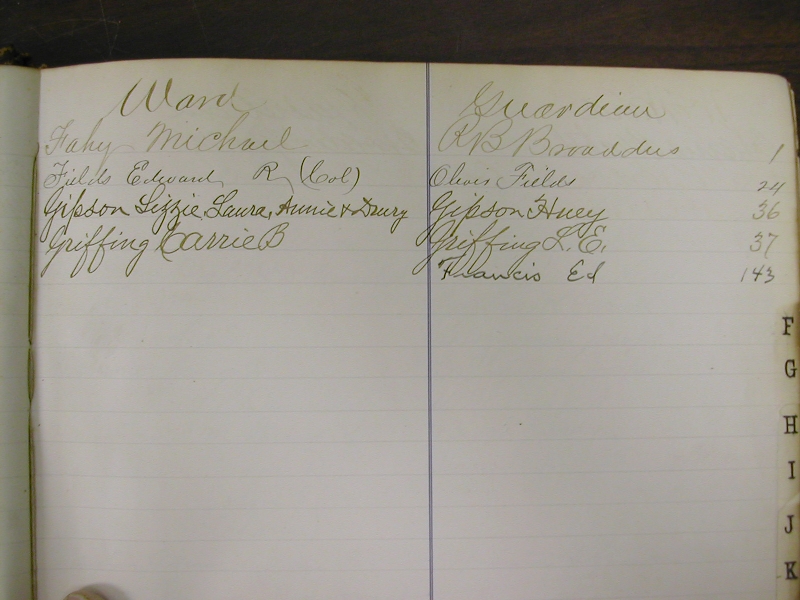 Ward Guardian
Fahy Michael R B Broaddus 1
Fields Edward R (Col) Olivis Fields 24
Gipson Lizzie, Laura, Annie & Drury Gipson Huey 36
Griffing Carrie B Griffing L. E. 37
Francis Ed 143
F
G
H
I
J
K